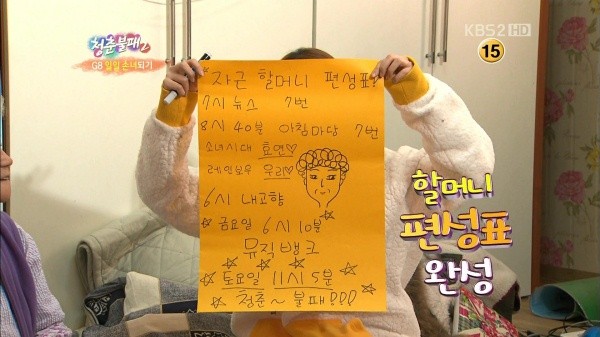 청춘불패2
G8 일일 손녀되기
KBS2 HD
15
자근 할머니 편성표?
7시 뉴스 7번
8시 40분 아침마당 7번
소녀시대 효연♡
레인보우 우리♡
6시 내고향
* 금요일 6시 10분
뮤직뱅크
토요일 11시 5분
청춘~ 불패!!!
할머니
편성표
완성